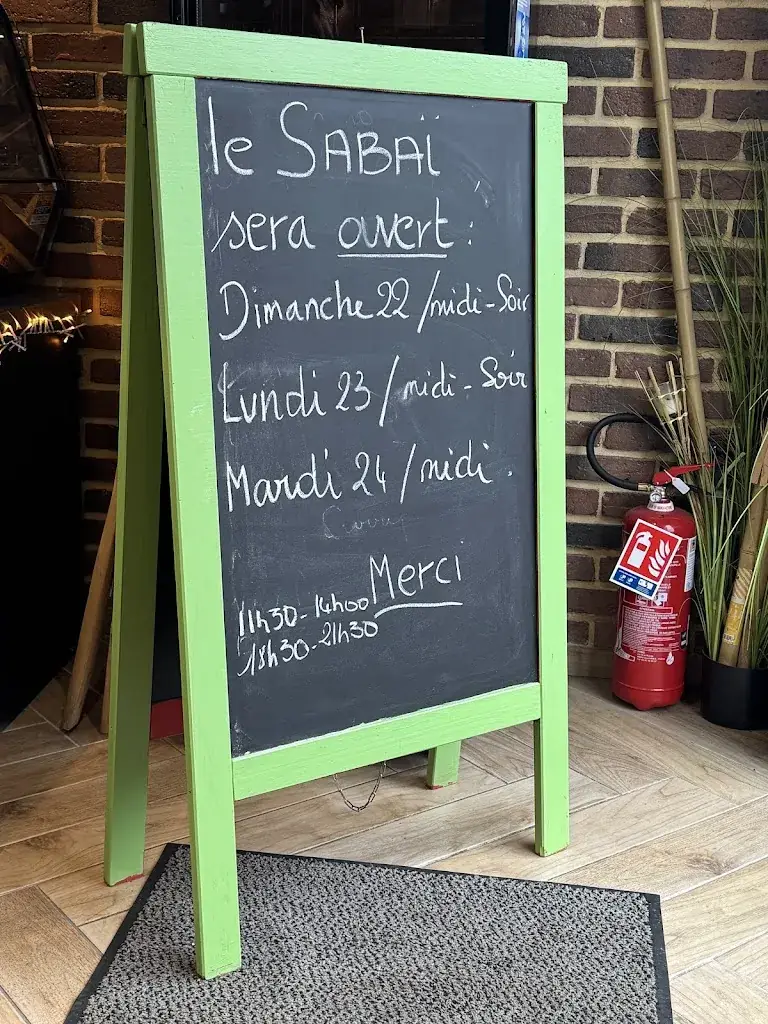 le SABAÏ
sera ouvert :
Dimanche 22 / midi - Soir
Lundi 23 / midi - Soir
Mardi 24 / midi .
Merci
11h30 - 14h00
18h30 - 21h30